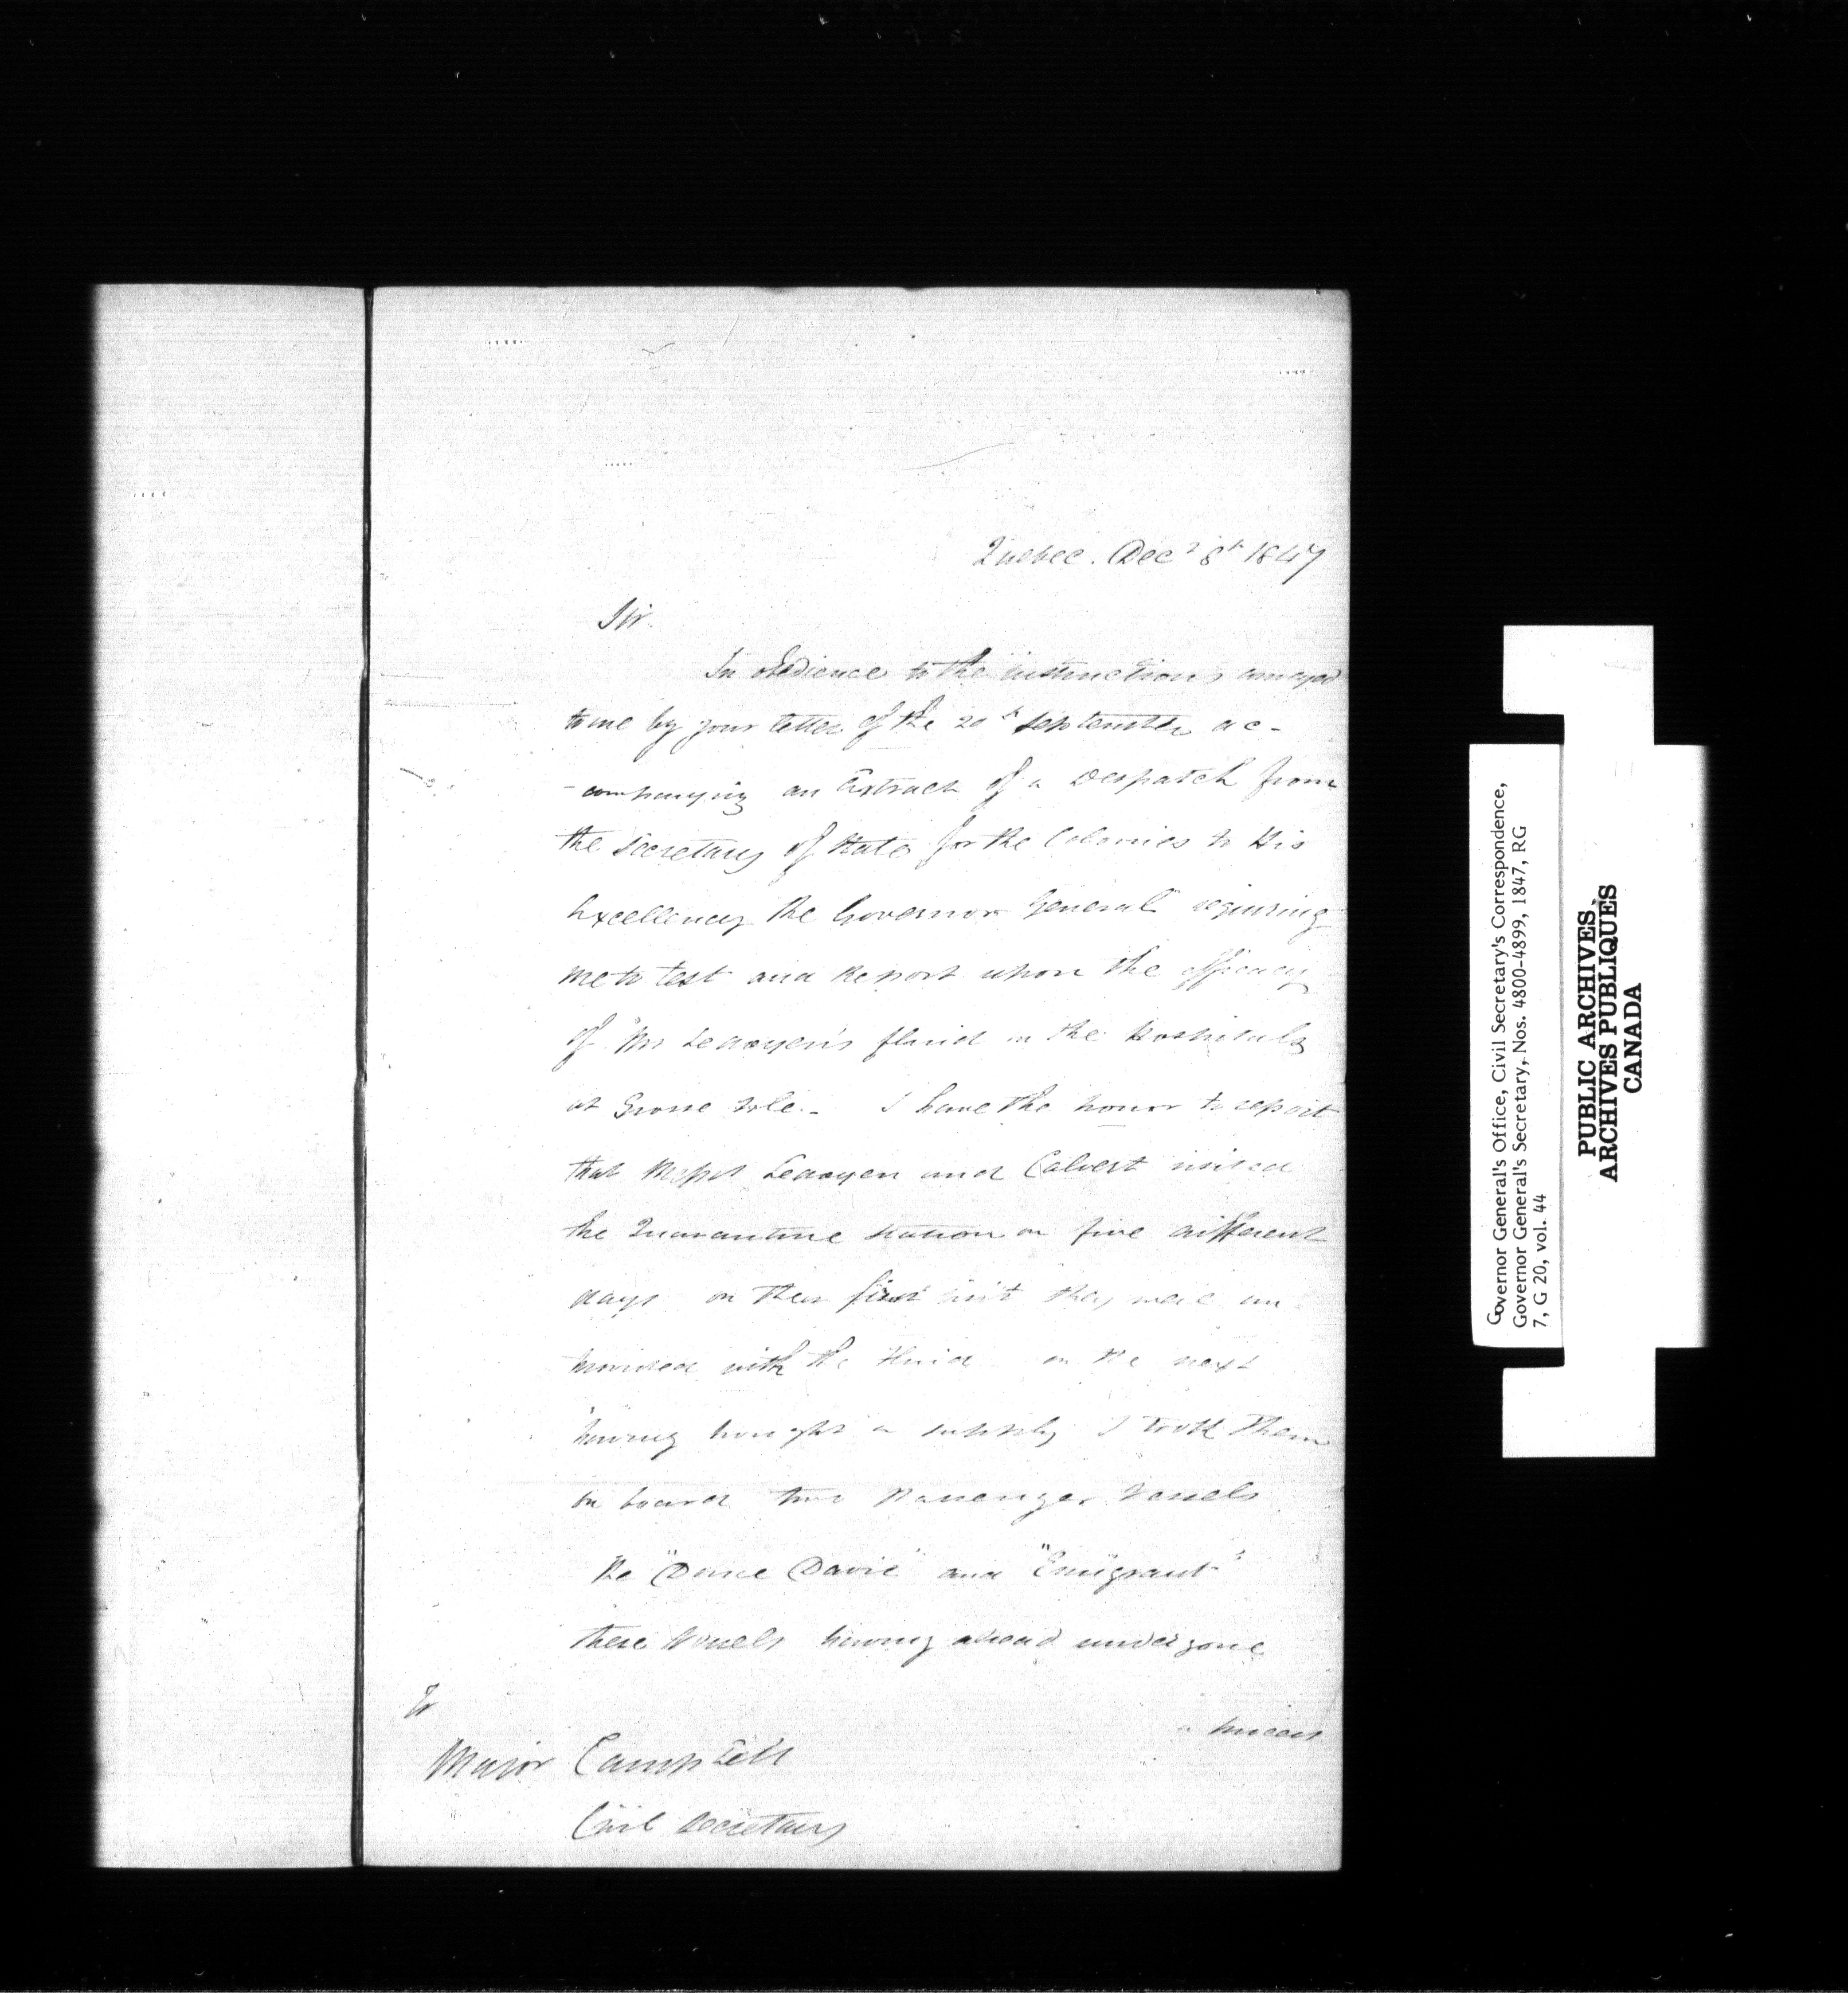 Quebec. Decr 8th 1847
Sir.
In obedience to the instructions conveyed
to me by your letter of the 20th September ac-
-companying an Extract of a Despatch from
the Secretary of State for the Colonies to His
Excellency the Governor General requiring
me to test and Report upon the efficacy
of Mr Ledoyen's fluid in the Hospitals
at Grosse Isle. - I have the honor to report
that Messrs Ledoyen and Calvert visited
the Quarantine Station on five different
days on their first visit they were un
provided with the fluid on the next
having brought a supply I took them
on board two Passenger Vessels
the "Douce Davie" and "Emigrant"
these Vessels having alread undergone
a
To
Major Campbell
Civil Secretary
Governor General's Office, Civil Secretary's Correspondence,
Governor General's Secretary, Nos. 4800-4899, 1847, RG
7, G 20, vol. 44
PUBLIC ARCHIVES
ARCHIVES PUBLIQUES
CANADA